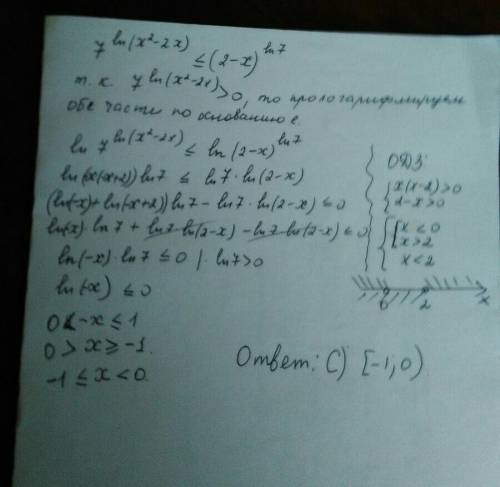 7^ln(x²-2x) ≤ (2-x)^ln7
т.к. 7^ln(x²-2x) > 0, то прологарифмируем
обе части по основанию e.
ln 7^ln(x²-2x) ≤ ln(2-x)^ln7
ln(-x(-x+2)) ln7 ≤ ln7 · ln(2-x)
(ln(-x)+ln(-x+2)) ln7 - ln7 · ln(2-x) ≤ 0
ln(-x) · ln7 + ln7 · ln(2-x) - ln7 · ln(2-x) ≤ 0
ln(-x) · ln7 ≤ 0 | : ln7 > 0
ln(-x) ≤ 0
0 < -x ≤ 1
0 > x ≥ -1.
-1 ≤ x < 0.
ОДЗ:
x(x-2) > 0
2-x > 0
x < 0
x > 2
x < 2
0 2 x
Ответ: C) [-1; 0)